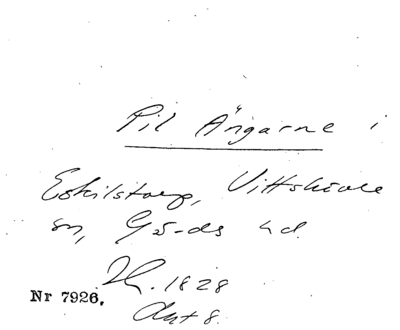 Pil Ängarne i
Eskilstorp, Vittskövle
sn, Gärds hd.
1828
Nr 7926.
Akt 8.